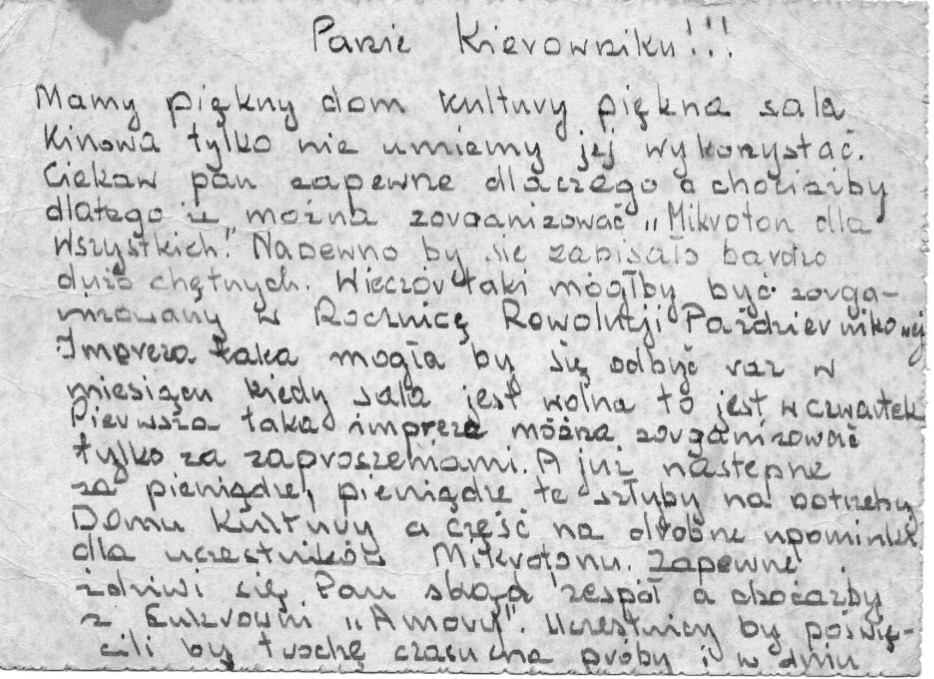 Panie Kierowniku!!!
Mamy piękny dom kultury piękna sala
Kinowa tylko nie umiemy jej wykonystać.
Ciekaw pan zapewne dlaczego a chociażby
dlatego iż można zorganizować "Mikroton dla
Wszystkich". Napewno by się zapisało bardzo
dużo chętnych. Wieczór taki mógłby być zorga-
nizowany w Rocznicę Rowolutji Październikowej
Impreza taka mogła by się odbyć raz w
miesiącu kiedy sala jest wolna to jest w czwartek
Pierwsza taka impreza można zorganizować
tylko za zaproszeniami. A już nastepne
za pieniądze, pieniądze te szłyby na potrzeby
Domu Kultury a część na drobne upominki
dla uczestników Mikrotonu. Zapewne
zdziwi się Pan skąd zespół a choćażby
z Cukrowni "Amory". Uczestnicy by poświę-
cili by trochę czasu na próby i w dniu